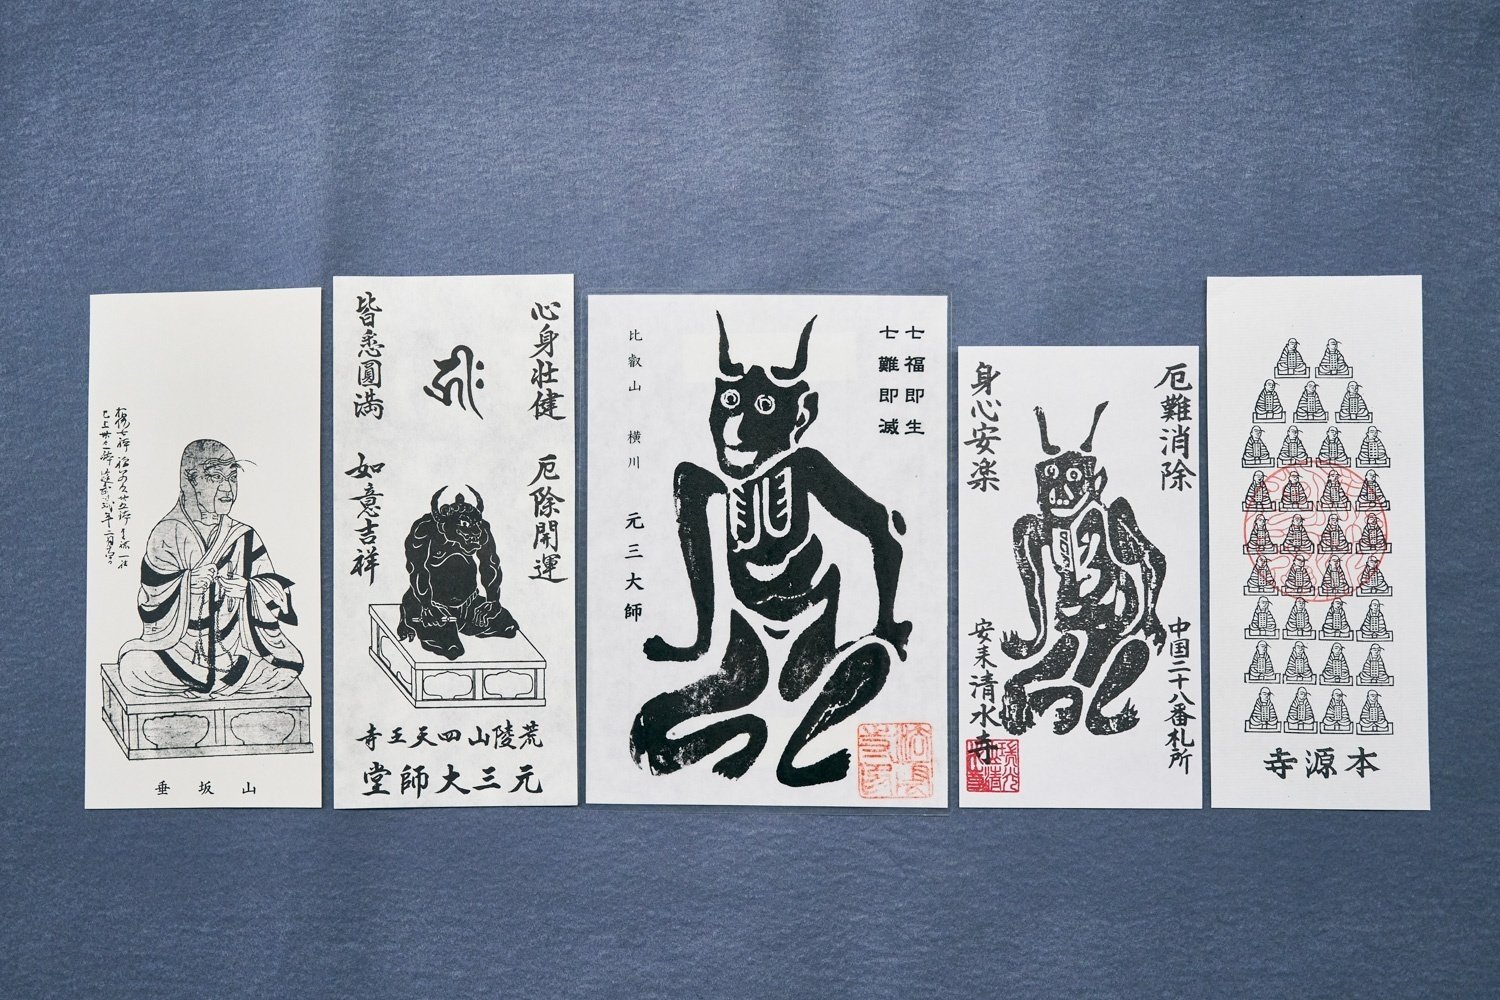 山坂垂
心身壮健
厄除開運
皆悉圓満
如意吉祥
荒陵山四天王寺
元三大師堂
七福即生
七難即滅
比叡山 横川 元三大師
厄難消除
身心安楽
中国二十八番札所
安来清水寺
本源寺